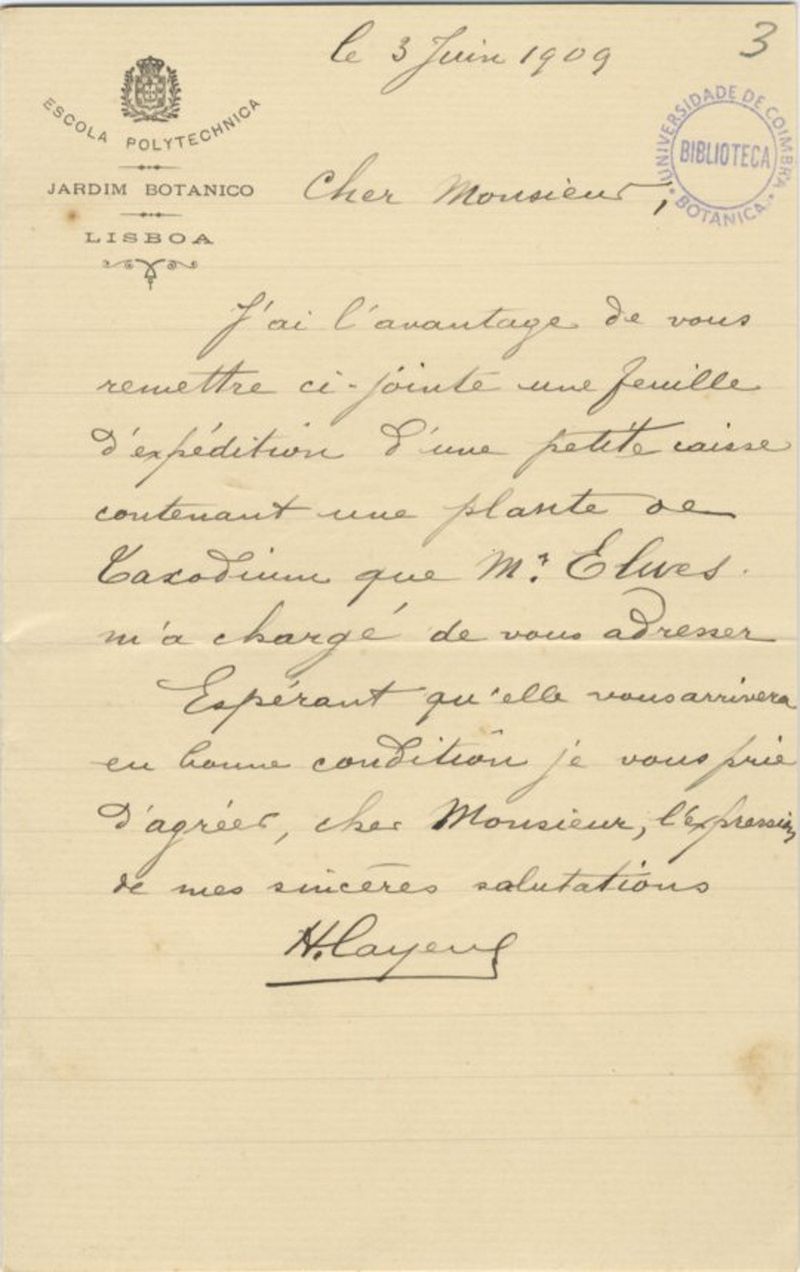 le 3 Juin 1909
3
ESCOLA POLYTECHNICA
JARDIM BOTANICO
LISBOA
UNIVERSIDADE DE COIMBRA
BIBLIOTECA
BOTANICA
Cher Monsieur,
J'ai l'avantage de vous
remettre ci-jointe une feuille
d'expédition d'une petite caisse
contenant une plante de
Taxodium que Mr. Elwes
m'a chargé de vous adresser
Espérant qu'elle vous arrivera
en bonne condition je vous prie
d'agréer, cher Monsieur, l'expression
de mes sincères salutations
H. Cayeux